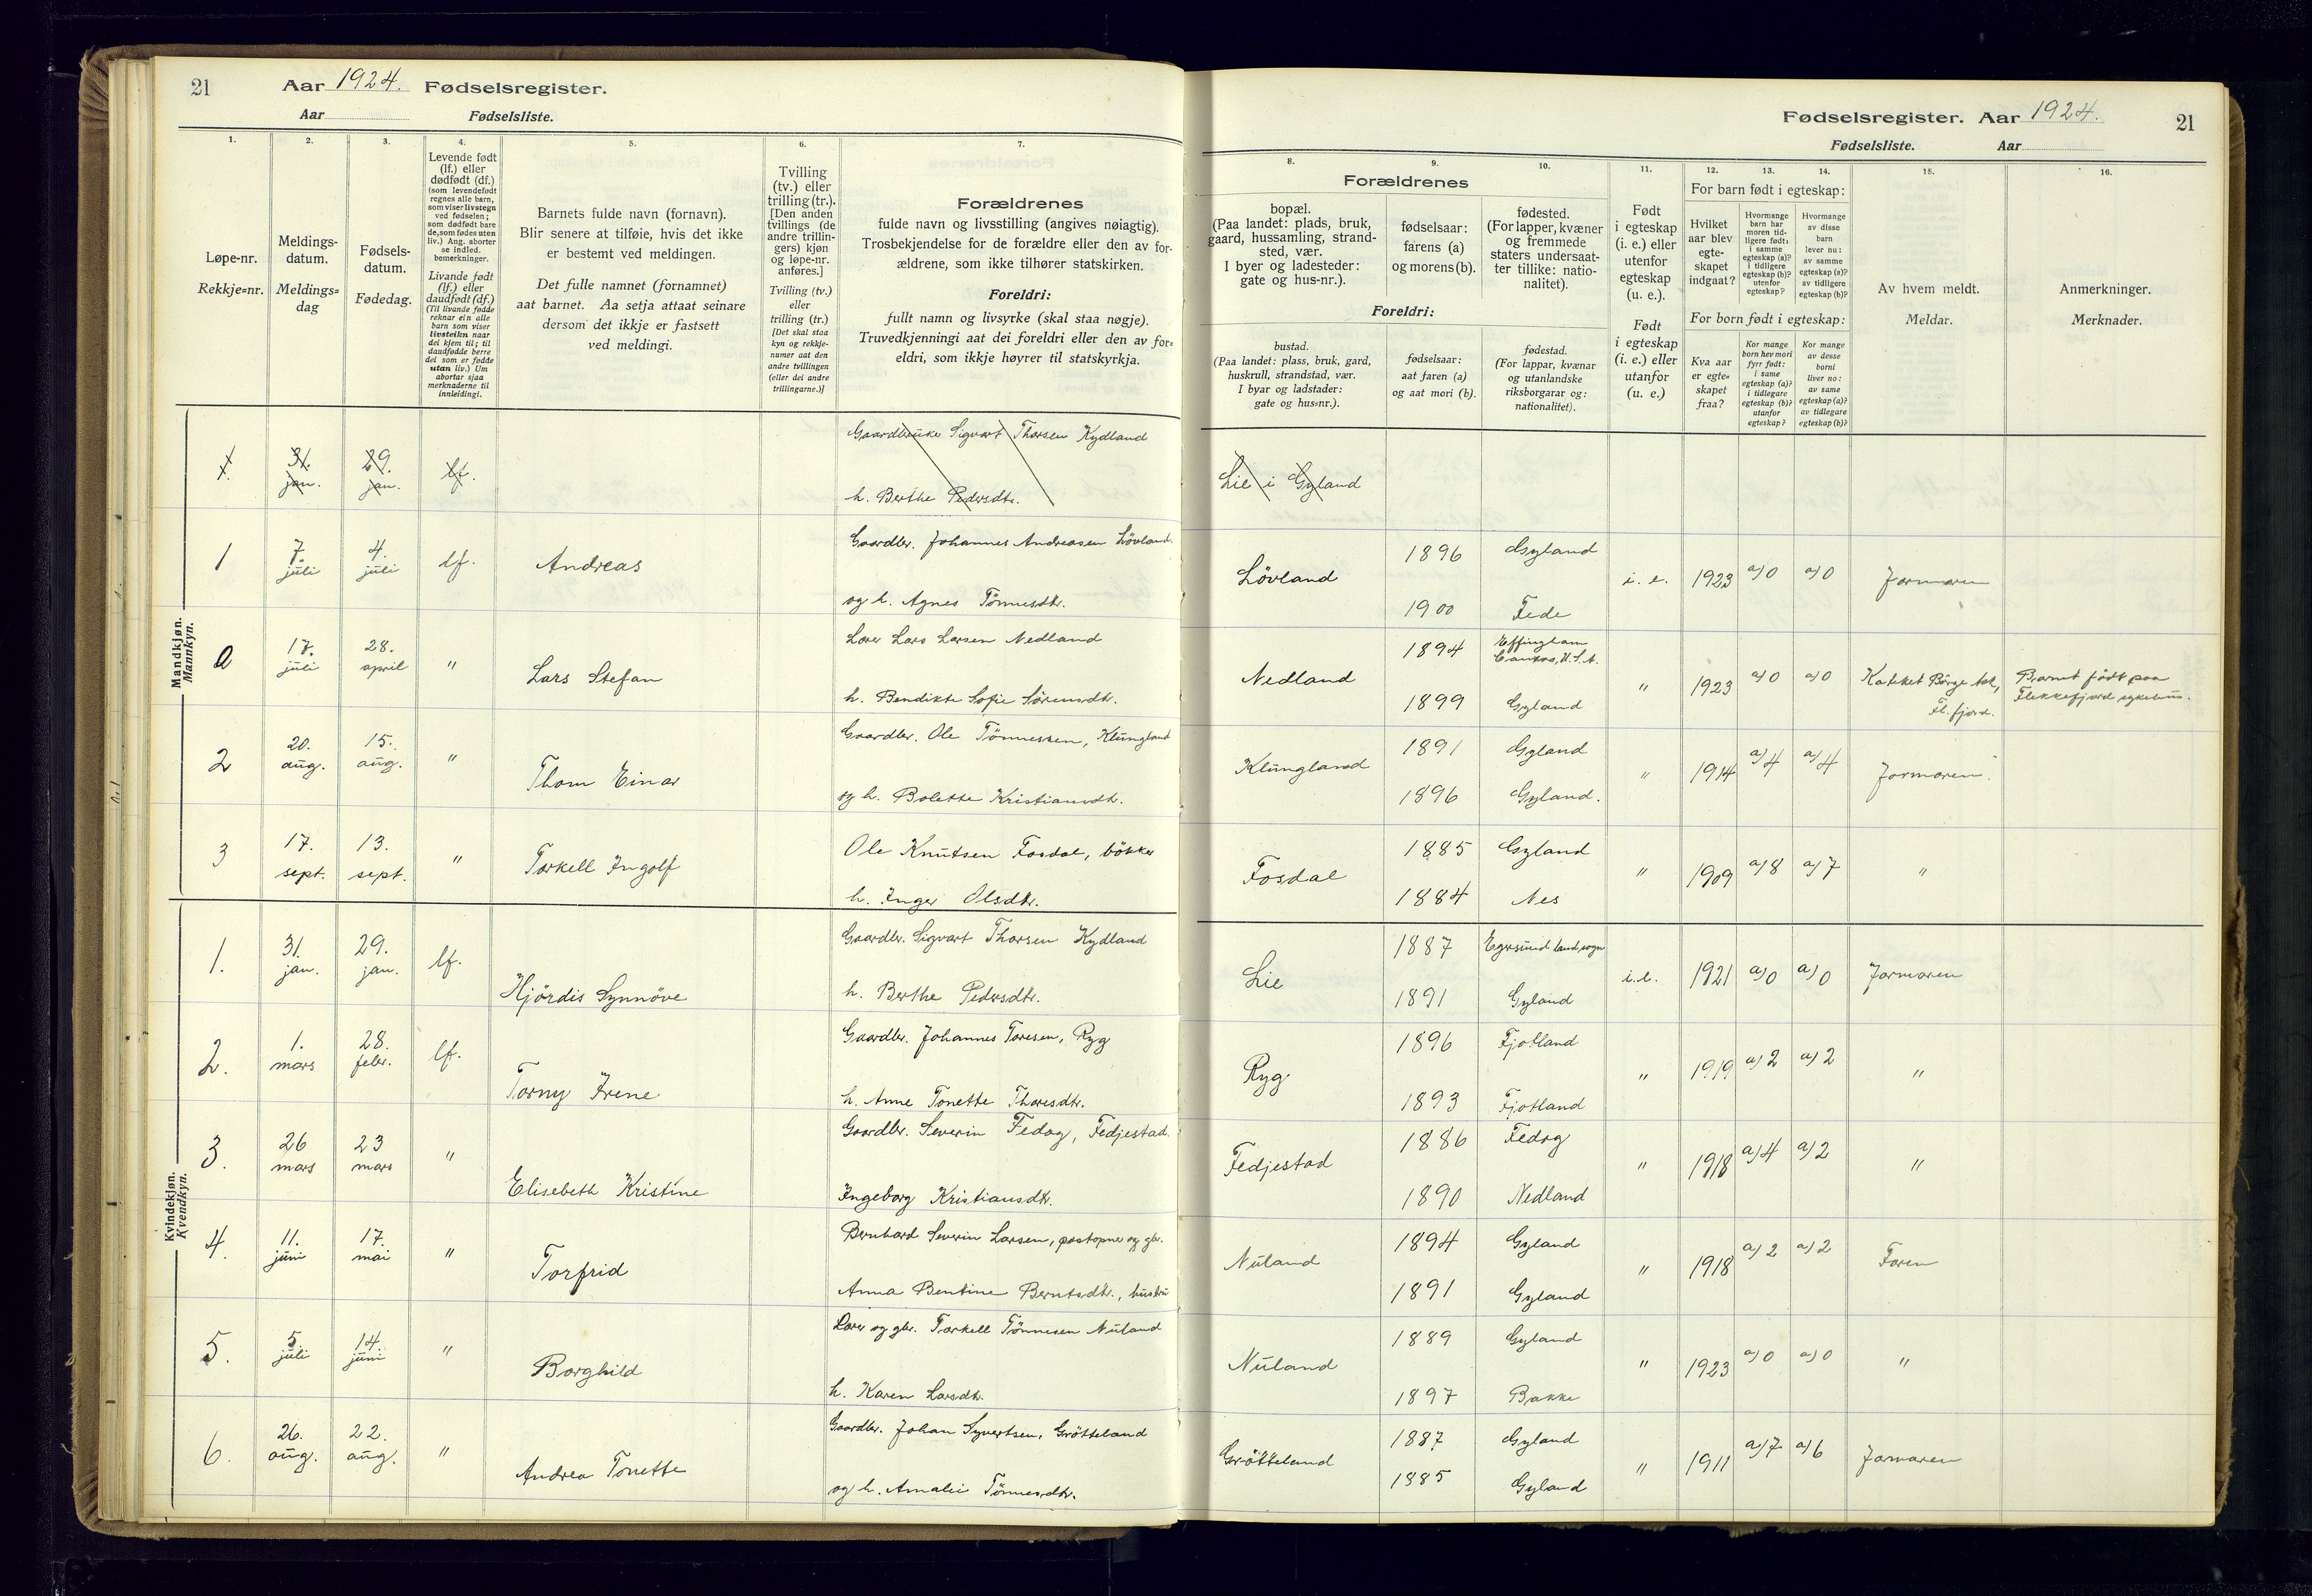 21 Aar 1924. Fødselsregister.
Aar Fødselsliste.
Fødselsregister. Aar 1924. 21
Fødselsliste. Aar
1. 2. 3. 4. 5. 6. 7.
Løpe-nr.
Rekkje=nr.
Meldings-
datum.
Meldings=
dag
Fødsels-
datum.
Fødedag.
Levende født
(lf.) eller
dødfødt (df.)
(som levendefødt
regnes alle barn,
som viser livstegn
ved fødselen;
som dødfødt bare
de, som fødes uten
liv.) Ang. aborter
se indled.
bemerkninger.
Livande født
(lf.) eller
daudfødt (df.)
(Til livande fødde
reknar ein alle
barn som viser
livsteikn naar
dei kjem til; til
daudfødde berre
dei som er fødde
utan liv.) Um
abortar sjaa
merknaderne til
innleidingi.
Barnets fulde navn (fornavn).
Blir senere at tilføie, hvis det ikke
er bestemt ved meldingen.
Det fulle namnet (fornamnet)
aat barnet. Aa setja attaat seinare
dersom det ikkje er fastsett
ved meldingi.
Tvilling
(tv.) eller
trilling (tr.).
[Den anden
tvillings (de
andre trillin-
gers) kjøn
og løpe-nr.
anføres.]
Tvilling (tv.)
eller
trilling (tr.)
[Det skal staa
kyn og rekkje-
numer aat den
andre tvillingen
(eller dei andre
trillingarne.)]
Forældrenes
fulde navn og livsstilling (angives nøiagtig).
Trosbekjendelse for de forældre eller den av for-
ældrene, som ikke tilhører statskirken.
Foreldri:
fullt namn og livsyrke (skal staa nøgje).
Truvedkjenningi aat dei foreldri eller den av for=
eldri, som ikkje høyrer til statskyrkja.
8. 9. 10. 11. 12. 13. 14. 15. 16.
Forældrenes
bopæl.
(Paa landet: plads, bruk,
gaard, hussamling, strand-
sted, vær.
I byer og ladesteder:
gate og hus-nr.).
fødselsaar:
farens (a)
og morens (b).
fødested.
(For lapper, kvæner
og fremmede
staters undersaat-
ter tillike: natio-
nalitet).
Foreldri:
bustad.
(Paa landet: plass, bruk, gard,
huskrull, strandstad, vær.
I byar og ladstader:
gate og hus=nr.).
fødselsaar:
aat faren (a)
og aat mori (b).
fødestad.
(For lappar, kvænar
og utanlandske
riksborgarar og:
nationalitet).
Født
i egteskap
(i. e.) eller
utenfor
egteskap
(u. e.).
Født
i egteskap
(i. e.) eller
utanfor
(u. e.)
For barn født i egteskap:
Hvilket
aar blev
egte-
skapet
indgaat?
Hvormange
barn har
moren tid-
ligere født:
i samme
egteskap (a)?
i tidligere
egteskap (b)?
utenfor
egteskap?
Hvormange
av disse
barn
lever nu:
av samme
egteskap (a)?
av tidligere
egteskap (b)?
For born født i egteskap:
Kva aar
er egte=
skapet
fraa?
Kor mange
born hev mori
fyrr født:
i same
egteskap (a)?
i tidlegare
egteskap (b)?
utanfor
egteskap?
Kor mange
av desse
borni
liver no:
av same
egteskap (a)?
av tidlegare
egteskap (b)?
Av hvem meldt.
Meldar.
Anmerkninger.
Merknader.
Mandkjøn.
Mannkyn.
1. 31. jan. 29. jan. lf. Gaardbruker Sigvart Thorsen Kydland
h. Berthe Pedersdtr. Lie i Gyland
1 7. juli 4. juli lf. Andreas Gaardbr. Johannes Andreasen Lövland.
og h. Agnes Tönnesdtr.
Lövland 1896 Gyland i. e. 1923 a) 0 a) 0 Jormoren
1900 Fede
2 17. juli 28. april " Lars Stefan Lærer Lars Larsen Nedland
h. Bendikte Sofie Sörensdtr.
Nedland 1894 Effingham
Canzas, U.S.A. " 1923 a) 0 a) 0
1899 Gyland Fl.fjord. Barnet födt paa
Flekkefjord sykehus.
2 20. aug. 15. aug. " Thom Einar Gaardbr. Ole Tönnessen, Klungland
og h. Bolette Kristiansdtr.
Klungland 1891 Gyland " 1914 a) 4 a) 4 Jormoren.
1896 Gyland.
3 17. sept. 13. sept. " Torkell Ingolf Ole Knutsen Fosdal, bökker
h. Inger Olsdtr.
Fosdal 1885 Gyland " 1909 a) 8 a) 7 "
1884 Nes
Kvindekjøn.
Kvendkyn.
1. 31. jan. 29. jan. lf. Hjördis Synnöve Gaardbr. Sigvart Thorsen Kydland
h. Berthe Pedersdtr.
Lie 1887 Egersund landsogn i.e. 1921 a) 0 a) 0 Jormoren
1891 Gyland
2. 1. mars 28. febr. lf. Torny Irene Gaardbr. Johannes Toresen, Ryg
h. Anne Tonette Thoresdtr.
Ryg 1896 Fjotland " 1919 a) 2 a) 2 "
1893 Fjotland
3. 26 mars 23 mars " Elisebeth Kristine Gaardbr. Severin Fedog, Fedjestad.
Ingeborg Kristiansdtr.
Fedjestad 1886 Fedog " 1918 a) 4 a) 2 "
1890 Nedland
4. 11. juni 17. mai " Torfrid Bernhard Severin Larsen, postopner og gbr.
Anna Bentine Berntsdtr., hustru
Nuland 1894 Gyland " 1918 a) 2 a) 2 Faren
1891 Gyland
5. 5. juli 14. juni " Borghild Lærer og gbr. Torkell Tönnesen Nuland
h. Karen Larsdtr.
Nuland 1889 Gyland " 1923 a) 0 a) 0 "
1897 Bakke
6. 26. aug. 22. aug. " Andrea Tonette Gaardbr. Johan Syvertsen, Grötteland
og h. Amalie Tönnesdtr.
Grötteland 1887 Gyland " 1911 a) 7 a) 6 Jormoren
1885 Gyland